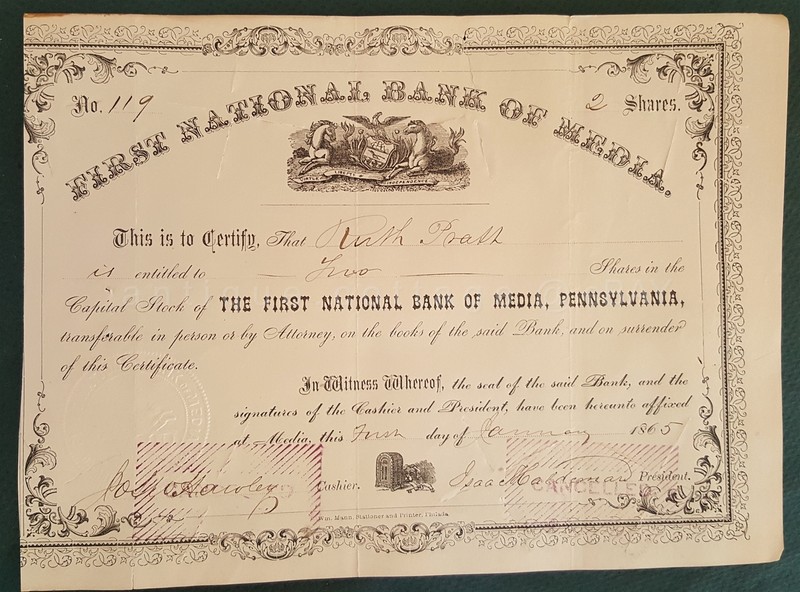 No. 119
2 Shares.
FIRST NATIONAL BANK OF MEDIA.
VIRTUE LIBERTY INDEPENDENCE
This is to Certify, That Ruth Pratt
is entitled to Two Shares in the
Capital Stock of THE FIRST NATIONAL BANK OF MEDIA, PENNSYLVANIA,
transferable in person or by Attorney, on the books of the said Bank, and on surrender
of this Certificate.
In Witness Whereof, the seal of the said Bank, and the
signatures of the Cashier and President, have been hereunto affixed
at Media, this First day of January 1865
Jos W Hawley Cashier. Isaac Haldeman President.
CANCELLED
Wm. Mann, Stationer and Printer, Philada.